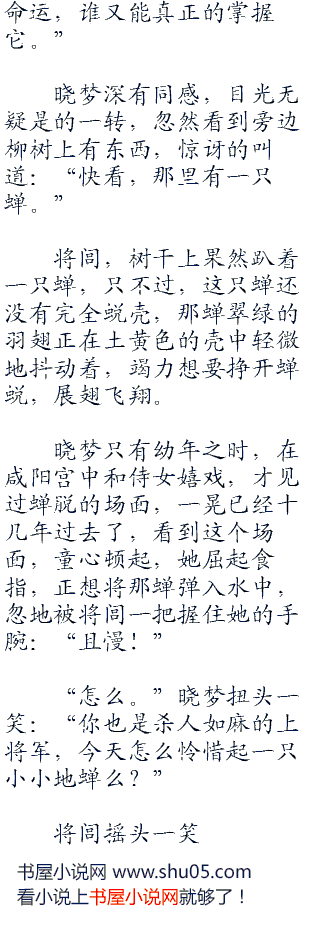 命运，谁又能真正的掌握
它。”
晓梦深有同感，目光无
疑是的一转，忽然看到旁边
柳树上有东西，惊讶的叫
道：“快看，那里有一只
蝉。”
将闾，树干上果然趴着
一只蝉，只不过，这只蝉还
没有完全蜕壳，那蝉翠绿的
羽翅正在土黄色的壳中轻微
地抖动着，竭力想要挣开蝉
蜕，展翅飞翔。
晓梦只有幼年之时，在
咸阳宫中和侍女嬉戏，才见
过蝉脱的场面，一晃已经十
几年过去了，看到这个场
面，童心顿起，她屈起食
指，正想将那蝉弹入水中，
忽地被将闾一把握住她的手
腕：“且慢！”
“怎么。”晓梦扭头一
笑：“你也是杀人如麻的上
将军，今天怎么怜惜起一只
小小地蝉么？”
将闾摇头一笑
书屋小说网 www.shu05.com
看小说上书屋小说网就够了！